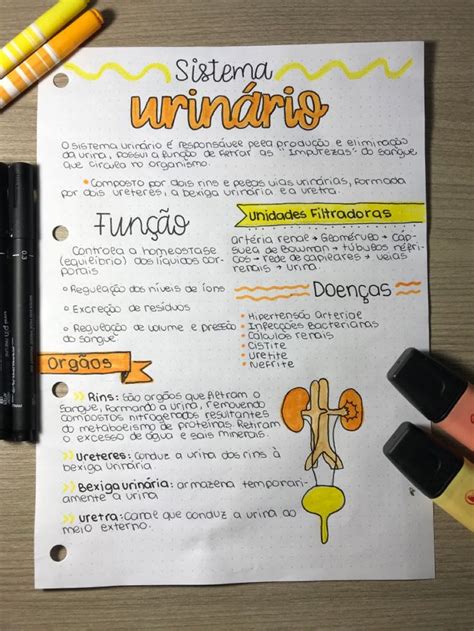 Sistema
urinário
O sistema urinário é responsável pela produção e eliminação
da urina, possui a função de filtrar as "impurezas" do sangue
que circula no organismo.
• Composto por dois rins e pelas vias urinárias, formada
por dois ureteres, a bexiga urinária e a uretra.
Função
Controla a homeostase
(equilíbrio) dos líquidos cor-
porais
• Regulação dos níveis de íons
• Excreção de resíduos
• Regulação de volume e pressão
do sangue
Unidades Filtradoras
Artéria renal → Glomérulo → Cáp-
sula de Bowman → túbulos néfri-
cos → rede de capilares → veias
renais → urina.
Doenças
• Hipertensão arterial
• Infecções bacterianas
• Cálculos renais
• Cistite
• Uretite
• Nefrite
Orgãos
Rins: São orgãos que filtram o
sangue, formando a urina, removendo
compostos nitrogenados resultantes
do metabolismo de proteínas. Retiram
o excesso de água e sais minerais.
Ureteres: conduz a urina dos rins à
bexiga urinária.
Bexiga urinária: armazena temporari-
amente a urina
Uretra: Canal que conduz a urina ao
meio externo.